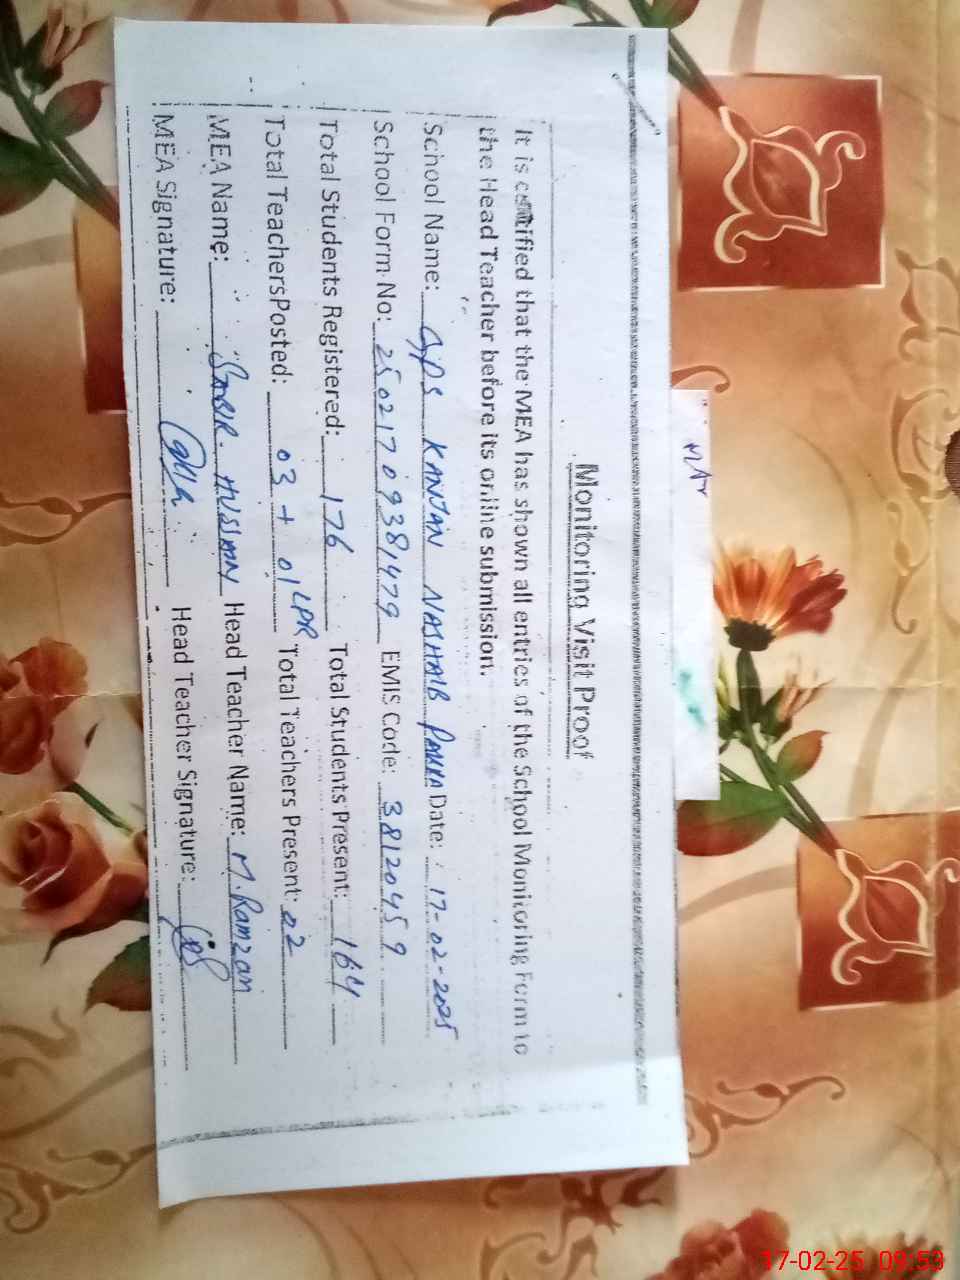 Monitoring Visit Proof
It is certified that the MEA has shown all entries of the School Monitoring Form to
the Head Teacher before its online submission.
School Name: GPS KANJAN NASHAIB Date: 17-02-2025
School Form No: 25021709381479 EMIS Code: 38120459
Total Students Registered: 176 Total Students Present: 164
Total TeachersPosted: 03 + 01 LPR Total Teachers Present: 02
MEA Name: Head Teacher Name: M. Ramzan
MEA Signature: Head Teacher Signature:
17-02-25 09:53